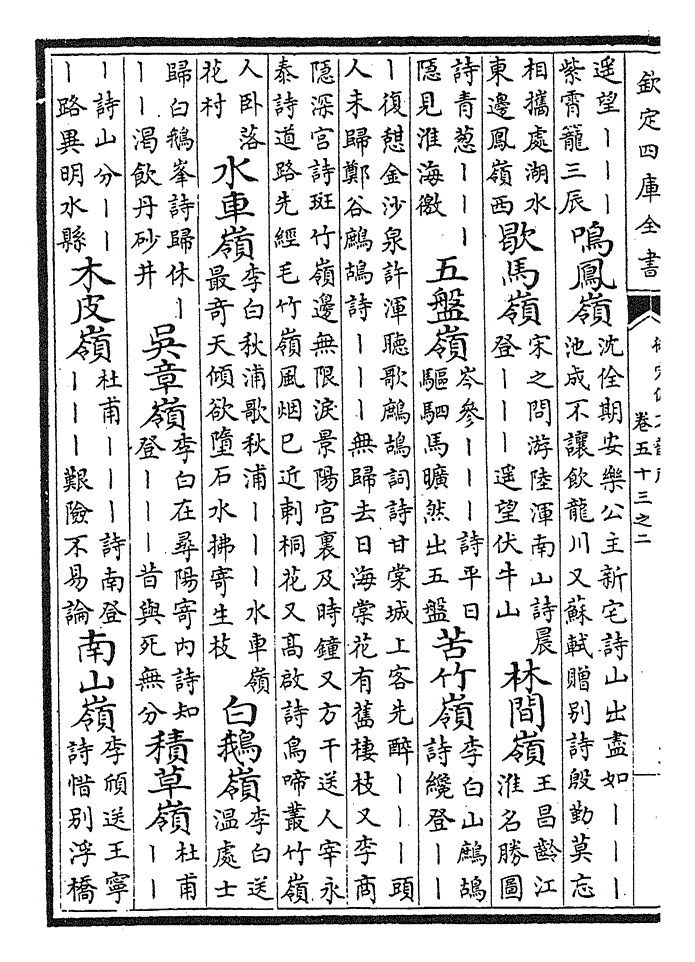 欽定四庫全書
卷五十三之二
遥望｜｜｜
紫霄籠三辰
鳴鳳嶺
沈佺期安樂公主新宅詩山出盡如｜｜｜
池成不讓飲龍川又蘇軾贈別詩殷勤莫忘
相攜處湖水
東邊鳳嶺西
歇馬嶺
宋之問游陸渾南山詩晨
登｜｜｜遥望伏牛山
林間嶺
王昌齡江
淮名勝圖
詩青葱｜｜｜
隠見淮海徼
五盤嶺
岑參｜｜｜詩平旦
驅駟馬曠然出五盤
苦竹嶺
李白山鷓鴣
詩纔登｜｜
｜復憇金沙泉許渾聽歌鷓鴣詞詩甘棠城上客先醉｜｜｜頭
人未歸鄭谷鷓鴣詩｜｜｜無歸去日海棠花有舊棲枝又李商
隠深宫詩斑竹嶺邊無限淚景陽宫裏及時鐘又方干送人宰永
泰詩道路先經毛竹嶺風烟已近刺桐花又髙啟詩鳥啼叢竹嶺
人卧落
花村
水車嶺
李白秋浦歌秋浦｜｜｜水車嶺
最奇天傾欲墮石水拂寄生枝
白鵝嶺
李白送
温處士
歸白鵝峯詩歸休｜
｜｜渴飲丹砂井
吳章嶺
李白在尋陽寄内詩知
登｜｜｜昔與死無分
積草嶺
杜甫
｜｜
｜詩山分｜｜
｜路異明水縣
木皮嶺
杜甫｜｜｜詩南登
｜｜｜艱險不易論
南山嶺
李頎送王寧
詩惜别浮橋